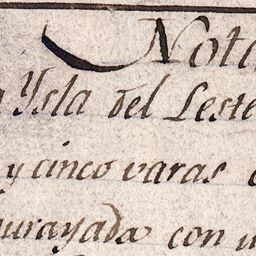 Nota
Ysla del Leste
y cinco varas
murayada con